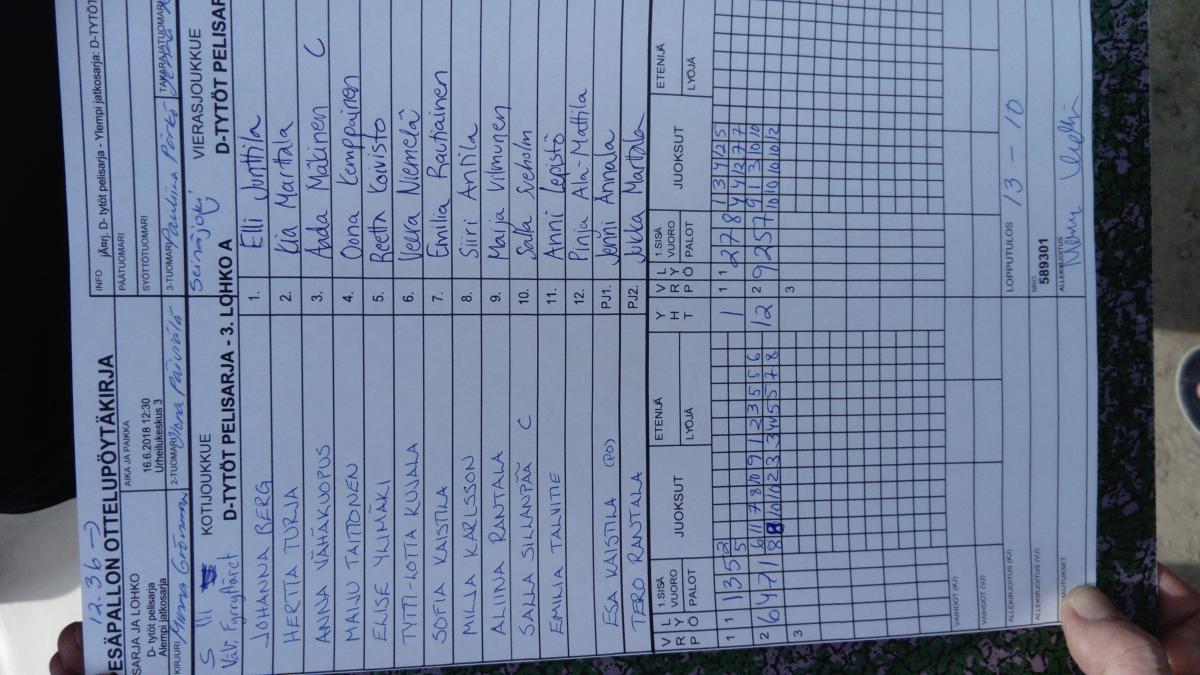 12.36 →
PESÄPALLON OTTELUPÖYTÄKIRJA
SARJA JA LOHKO
D- tytöt pelisarja
Alempi jatkosarja
AIKA JA PAIKKA
16.6.2018 12:30
Urheilukeskus 3
INFO
D- tytöt pelisarja - Ylempi jatkosarja: D-TYTÖT
PÄÄTUOMARI
SYÖTTÖTUOMARI
KIRJURI
2-TUOMARI
3-TUOMARI Pauliina
TAKARAJATUOMARI
KOTIJOUKKUE
Seinäjoki
VIERASJOUKKUE
D-TYTÖT PELISARJA - 3. LOHKO A
D-TYTÖT PELISAR
JOHANNA BERG 1. Elli Junttila
HERTTA TURJA 2. Kia Marttala
ANNA VÄHÄKUOPUS 3. Aada Mäkinen C
MAINU TAITTONEN 4. Oona Kemppainen
ELISE YLIMÄKI 5. Reetta Koivisto
TYTTI-LOTTA KUJALA 6. Veera Niemelä
SOFIA KAISTILA 7. Emilia Rautiainen
MILJA KARLSSON 8. Siiri Anttila
ALIINA RANTALA 9. Maija Vilmunen
SALLA SILLANPÄÄ C 10. Salla Sveholm
EMILIA TALVITIE 11. Anni Lepistö
12. Pinja Ala-Mattila
ESA KAISTILA (PO) PJ1. Jenni Annala
TERO RANTALA PJ2. Jukka Marttala
V R P L Y Ö 1.SISÄ VUORO PALOT JUOKSUT ETENIJÄ LYÖJÄ Y H T V R P L Y Ö 1.SISÄ VUORO PALOT JUOKSUT ETENIJÄ LYÖJÄ
1 1 1 3 5 2 1 1 1 2 7 8 1 3 4 2 5
5 4 4 2 7 7
2 6 4 7 1 6 11 7 8 10 9 1 2 3 5 5 6 12 2 9 2 5 7 9 1 3 10 10
8 10 10 2 3 3 4 5 5 7 8 10 10 10 12
3 3
VAIHDOT (KJ)
VAIHDOT (VJ)
ALLEKIRJOITUS (KJ)
LOPPUTULOS 13 - 10
ALLEKIRJOITUS (VJ)
NRO
589301
ALLEKIRJOITUS